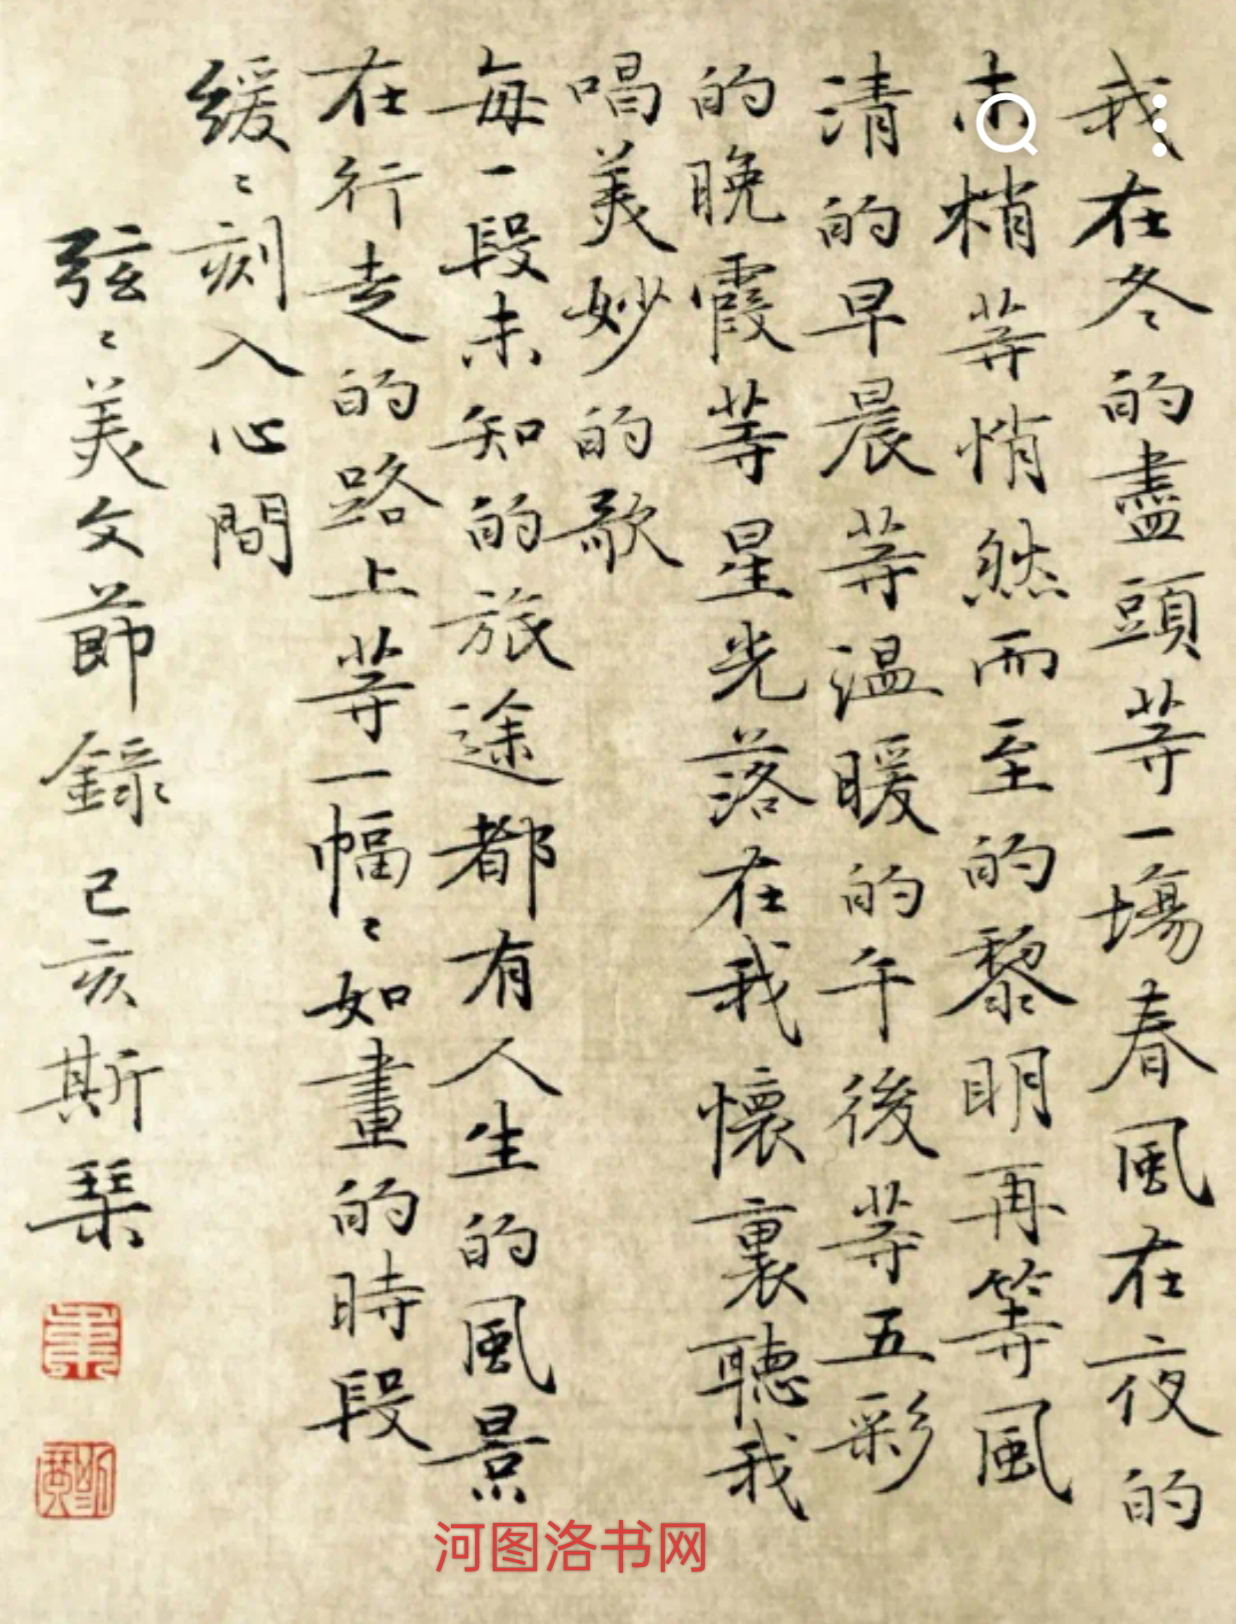 我在冬的盡頭等一場春風在夜的
末梢等悄然而至的黎明再等風
清的早晨等温暖的午後等五彩
的晚霞等星光落在我懷裏聽我
唱美妙的歌
每一段未知的旅途都有人生的風景
在行走的路上等一幅〻如畫的時段
緩〻刻入心間
弦〻美文節錄己亥斯琴
河图洛书网